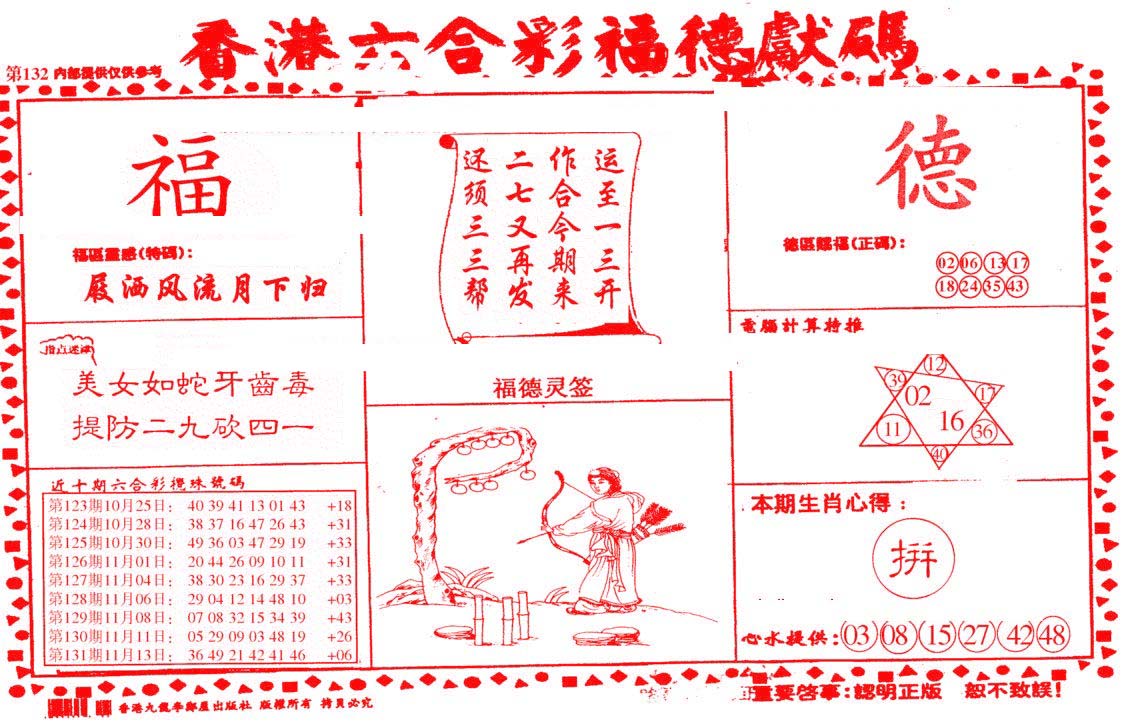 香港六合彩福德獻碼
第132 内部提供仅供参考
福
福區靈感(特碼):
屐洒风流月下归
指点迷津
美女如蛇牙齒毒
提防二九砍四一
近十期六合彩攪珠號碼
第123期10月25日: 40 39 41 13 01 43 +18
第124期10月28日: 38 37 16 47 26 43 +31
第125期10月30日: 49 36 03 47 29 19 +33
第126期11月01日: 20 44 26 09 10 11 +31
第127期11月04日: 38 30 23 16 29 37 +33
第128期11月06日: 29 04 12 14 48 10 +03
第129期11月08日: 07 08 32 15 34 39 +43
第130期11月11日: 05 29 09 03 48 19 +26
第131期11月13日: 36 49 21 42 41 46 +06
运至一三开
作合今期来
二七又再发
还须三三帮
福德灵签
德
德區賜福(正碼):
02 06 13 17
18 24 35 43
電腦計算特推
12
39
02
17
11
16
36
40
本期生肖心得:
拼
心水提供:03 08 15 27 42 48
版權所有 拷貝必究
重要啓事:認明正版 恕不致誤!